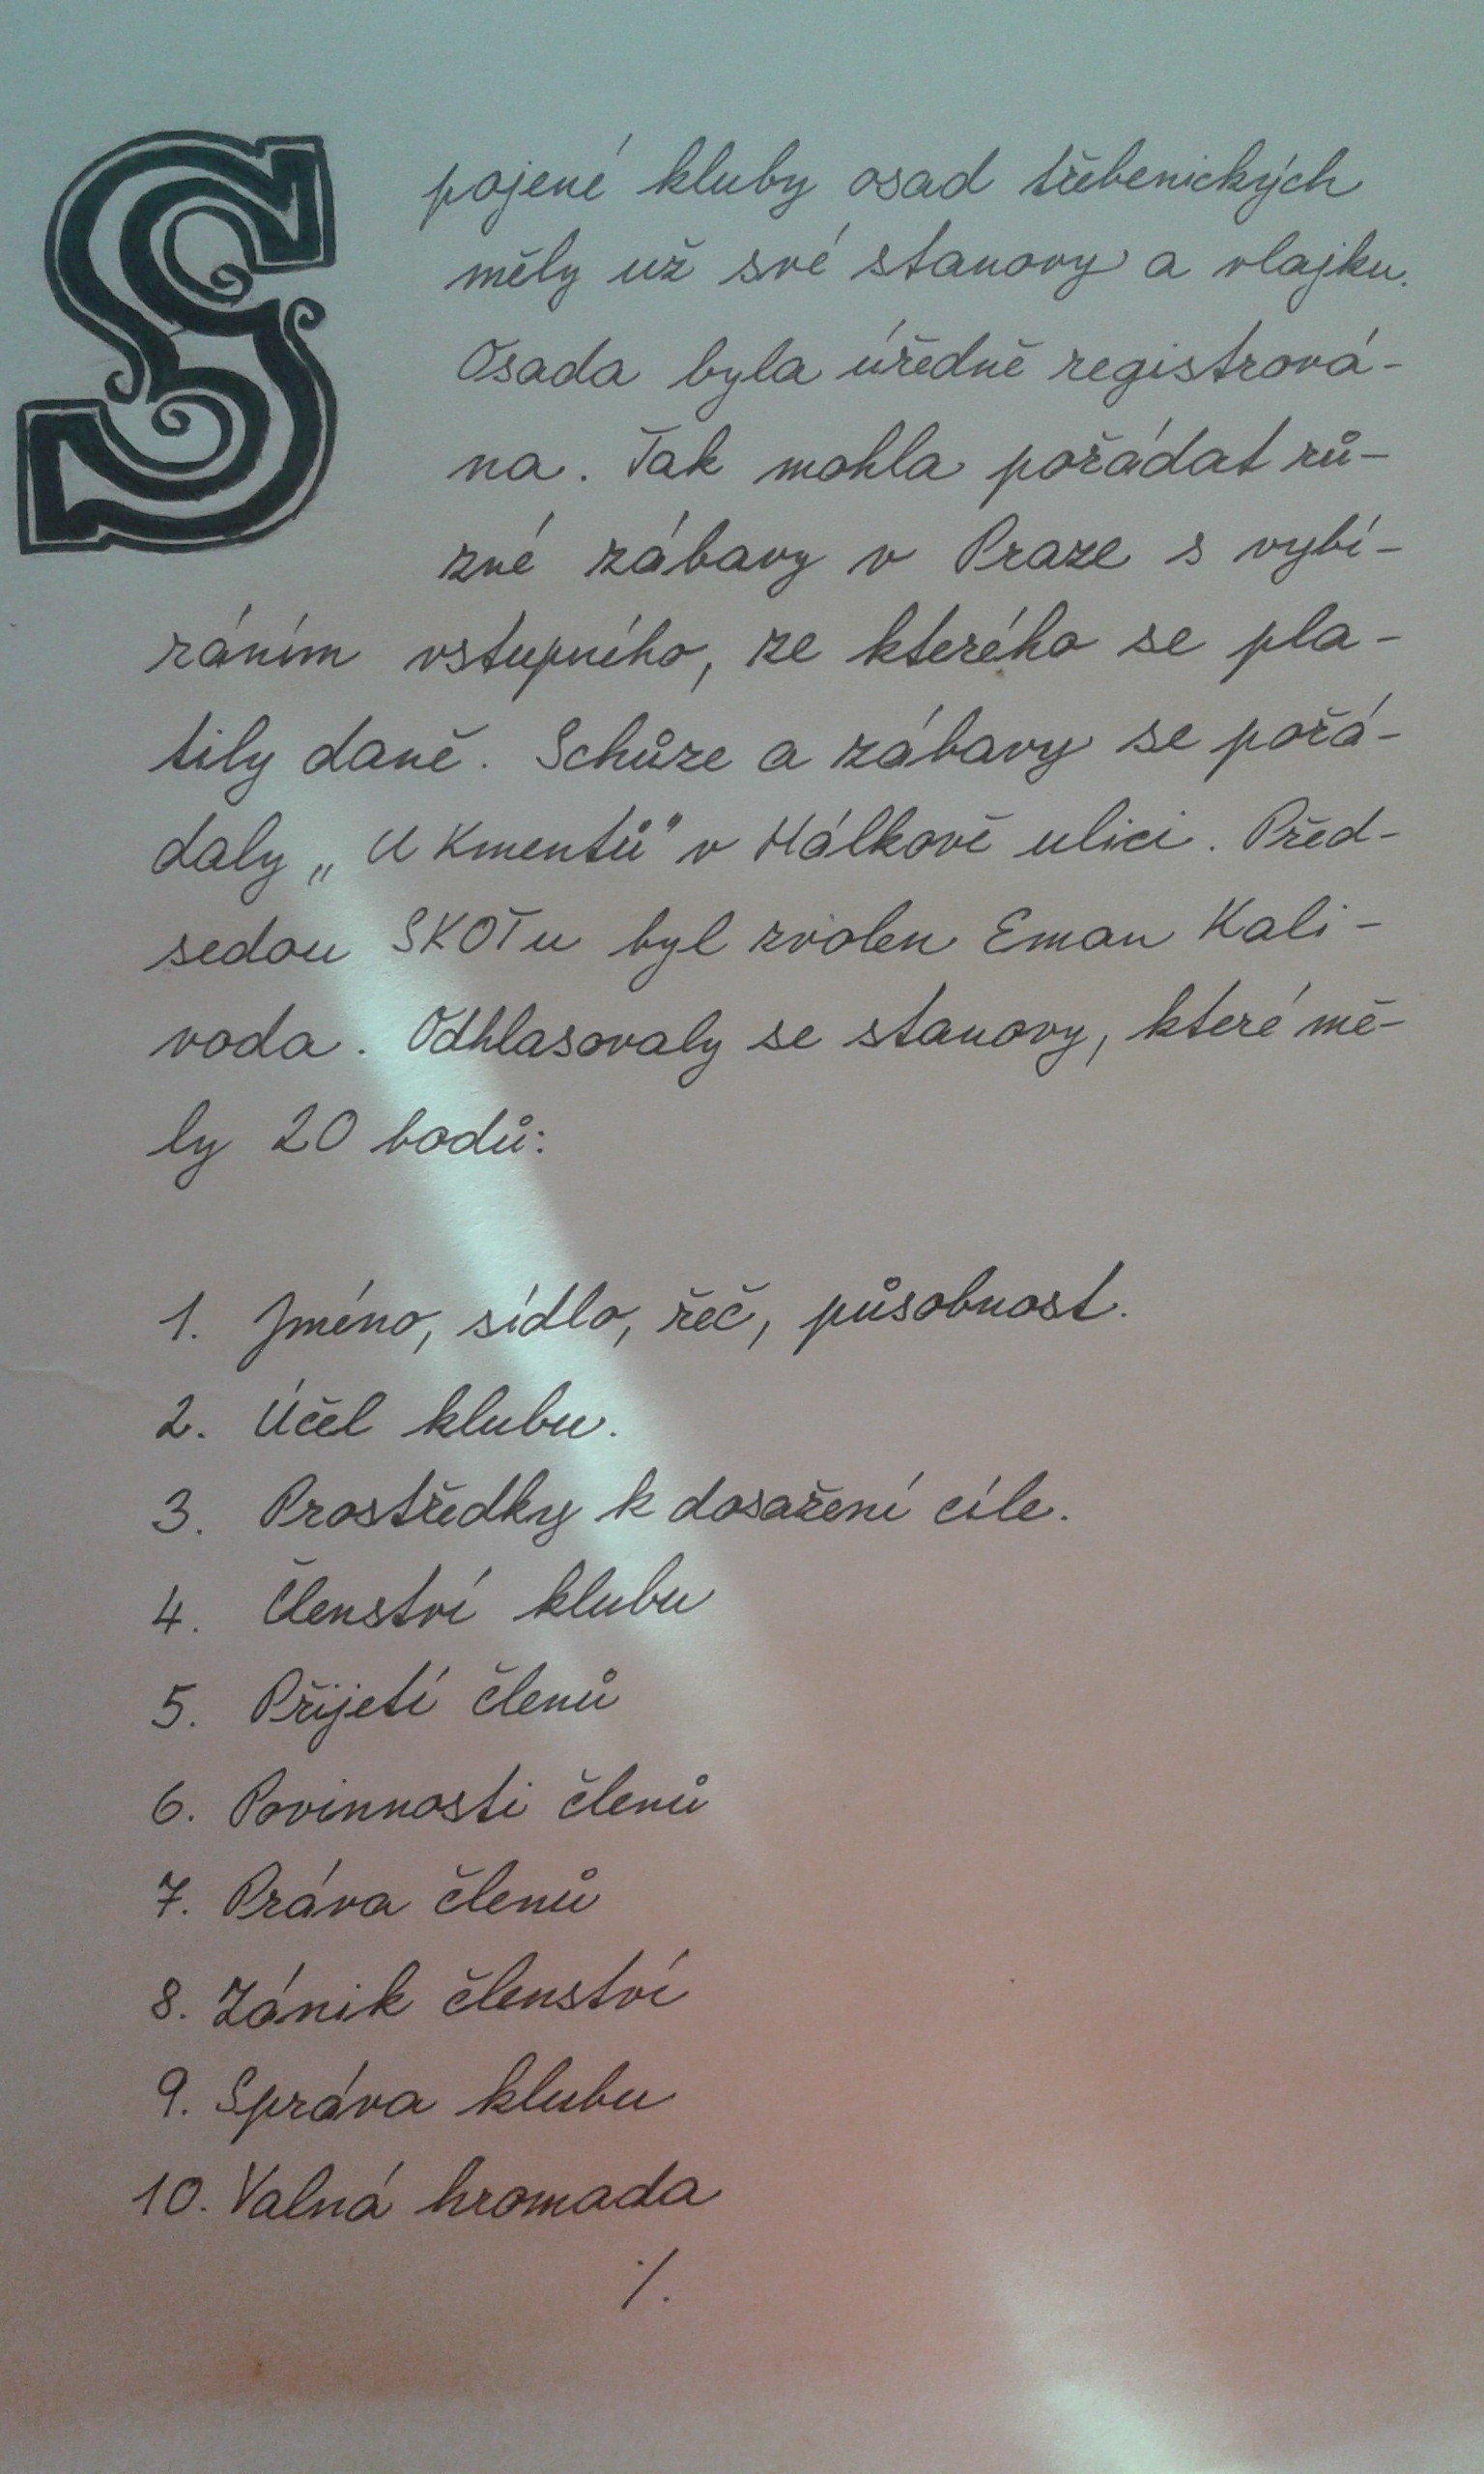 Spojené kluby osad třebenických
měly už své stanovy a vlajku.
Osada byla úředně registrová-
na. Tak mohla pořádat rů-
zné zábavy v Praze s vybí-
ráním vstupného, ze kterého se pla-
tily daně. Schůze a zábavy se pořá-
daly „U Kmentů" v Hálkově ulici. Před-
sedou SKOTu byl zvolen Eman Kali-
voda. Odhlasovaly se stanovy, které mě-
ly 20 bodů:
1. Jméno, sídlo, řeč, působnost.
2. Účel klubu.
3. Prostředky k dosažení cíle.
4. Členství klubu
5. Přijetí členů
6. Povinnosti členů
7. Práva členů
8. Zánik členství
9. Správa klubu
10. Valná hromada
./.